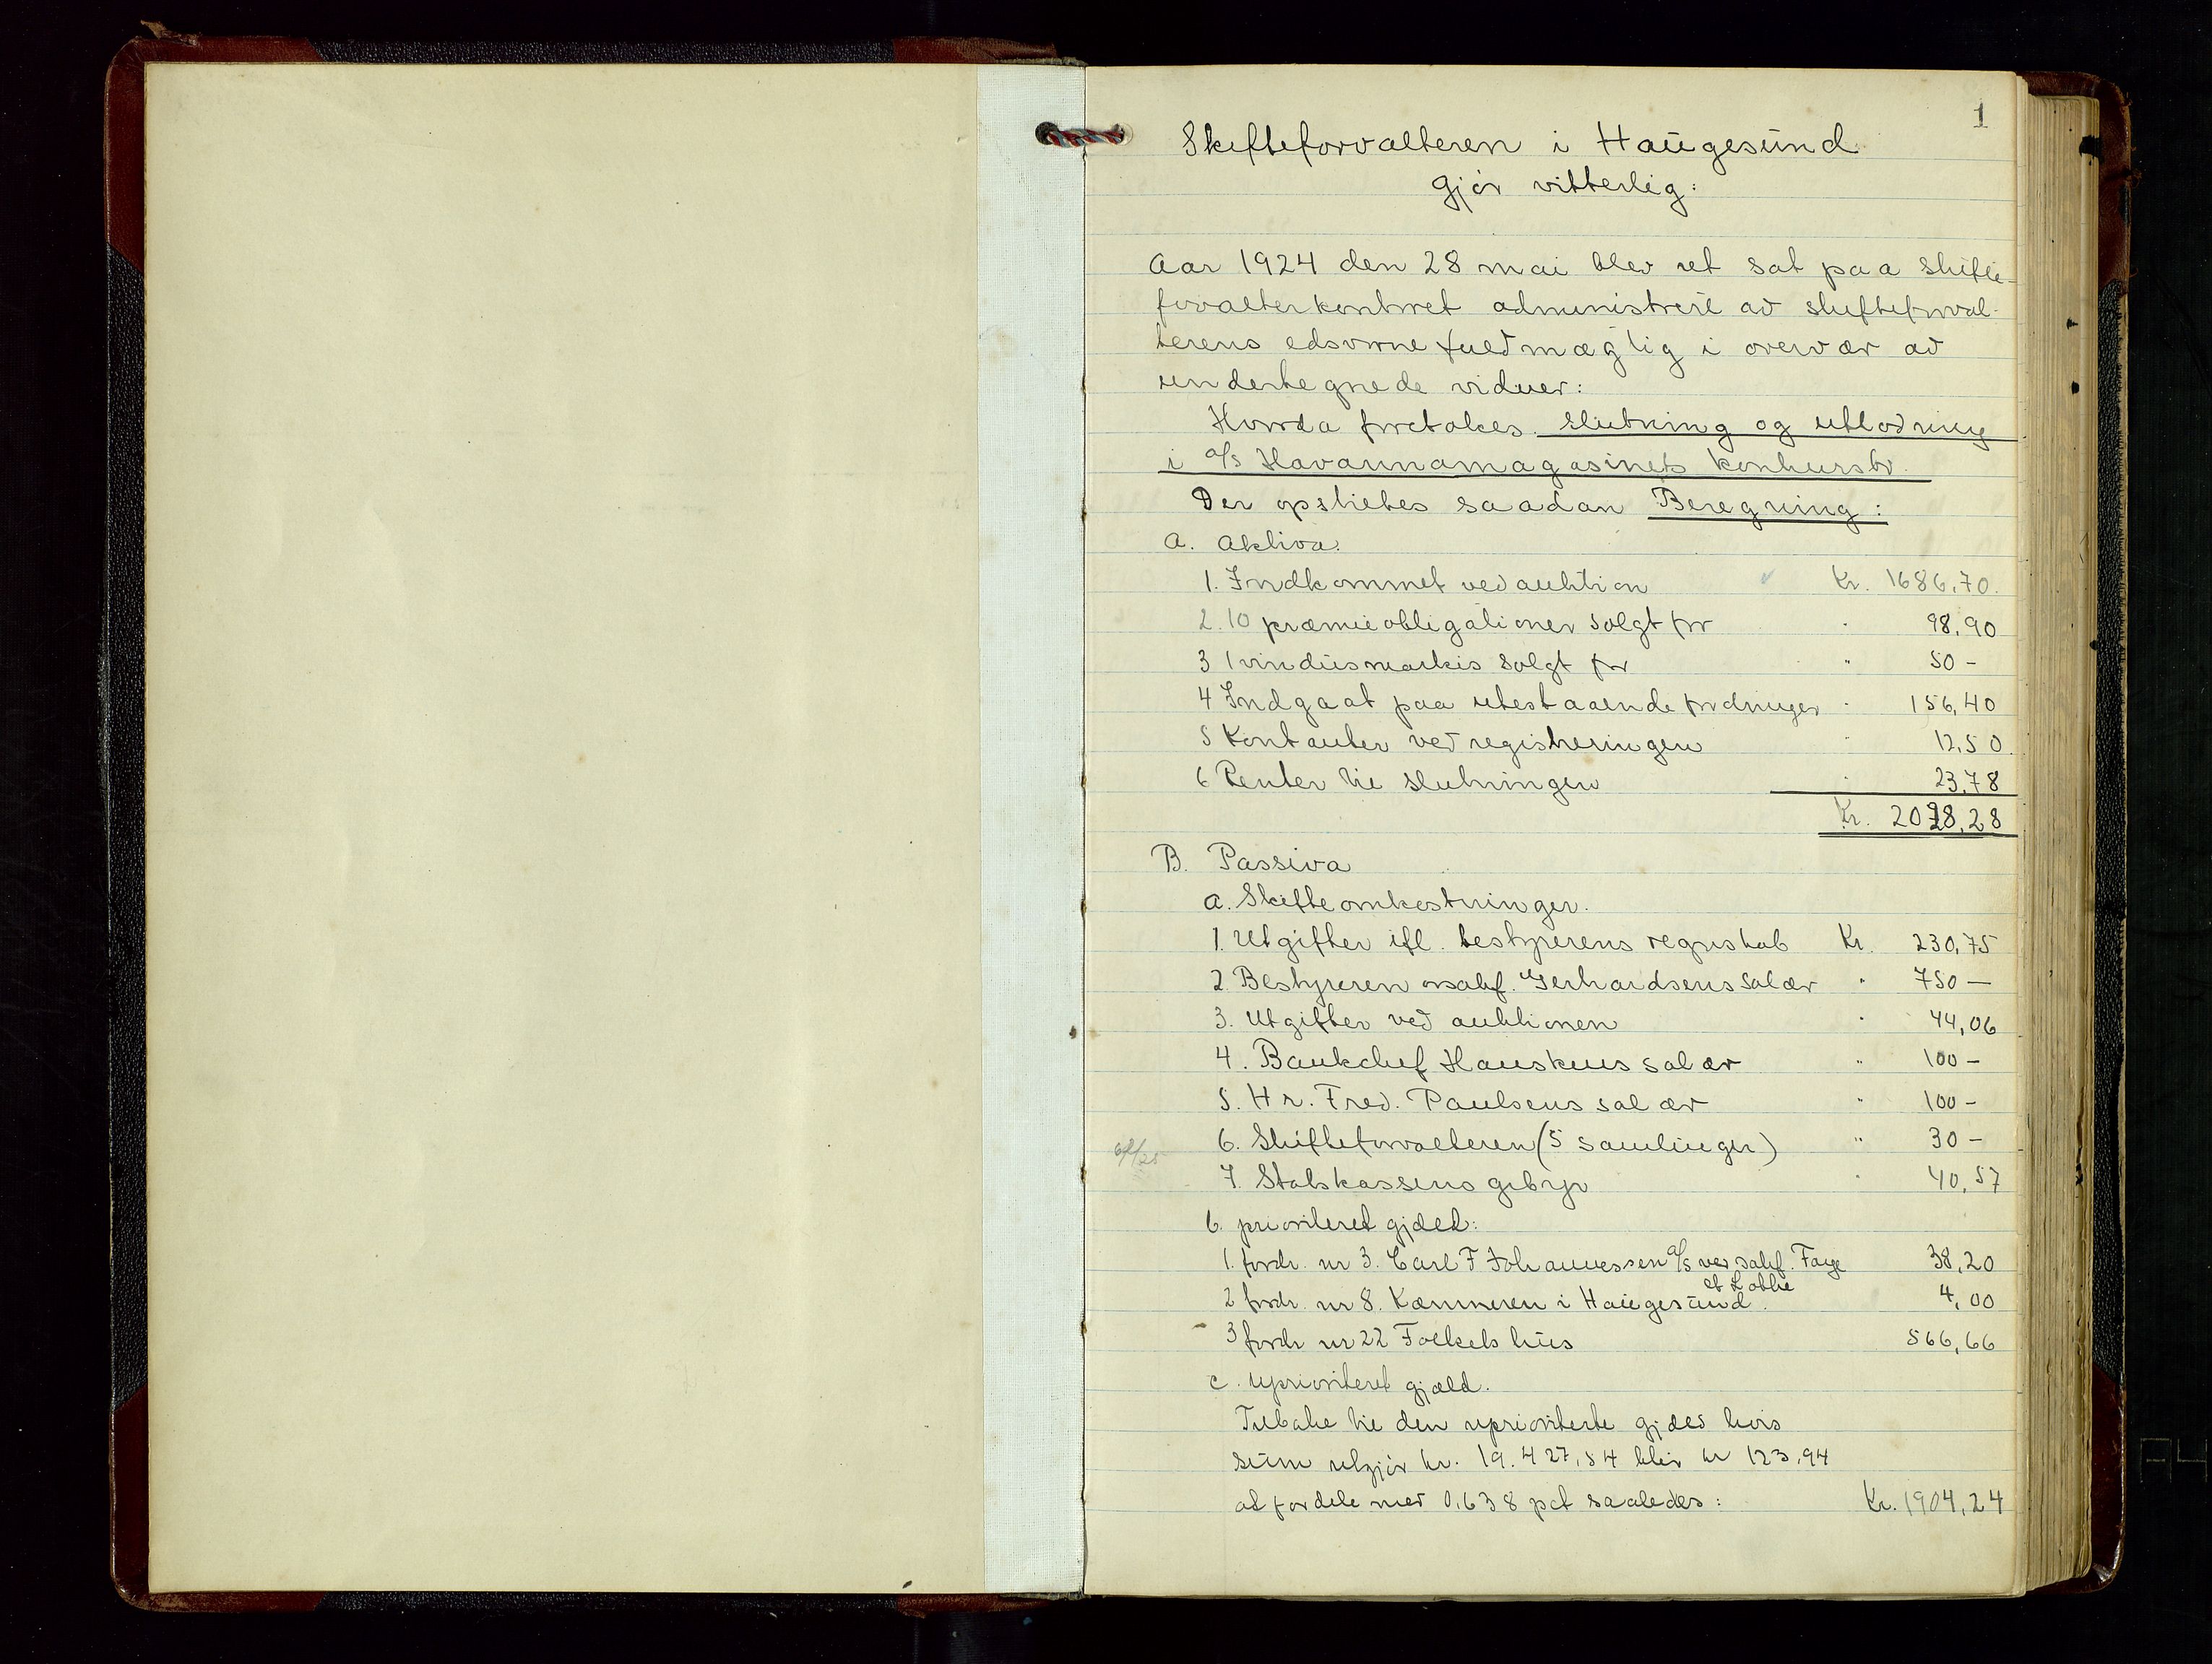 1
Skifteforvalteren i Haugesund
gjör vitterlig:
Aar 1924 den 28 mai blev ret sat paa skifte-
forvalterkontoret administrert av skifteforval-
terens edsvorne fuldmægtig i overvær av
undertegnede vidner:
Hvorda foretokes slutning og utlodning
i a/s Havannamagasinets konkursbo.
Der opstilles saadan Beregning:
A. Aktiva.
1. Indkommet ved auktion Kr. 1686,70.
2. 10 præmieobligationer solgt for " 98,90
3 1 vindusmarkis solgt for " 50 -
4 Indgaat paa utestaaende fordringer " 156,40
5 Kontanter ved registreringen " 12,50.
6 Renter til slutningen " 23,78
Kr. 2028,28
B. Passiva
a. Skifteomkostninger.
1. Utgifter ifl. bestyrerens regnskab Kr. 230,75
2. Bestyreren o.r.sakf. Gerhardsens salær " 750 —
3. Utgifter ved auktionen " 44,06
4. Bankchef Hauskens salær " 100 -
5. Hr. Fred. Paulsens salær " 100 -
6. Skifteforvalteren (5 samlinger) " 30 -
7. Statskassens gebyr " 40,57
b. prioritert gjæld:
1. fordr. nr 3. Carl F Johannessen a/s ved sakf. Faye
et Lothe 38,20
2 fordr. nr 8. Kæmneren i Haugesund. 4,00
3 fordr nr 22 Folkets hus 566,66
c. uprioritert gjæld.
Tilbake til den uprioriterte gjæld hvis
sum utgjör kr. 19.427,54 blir kr 123,94
at fordele med 0,638 pct saaledes: Kr. 1904,24